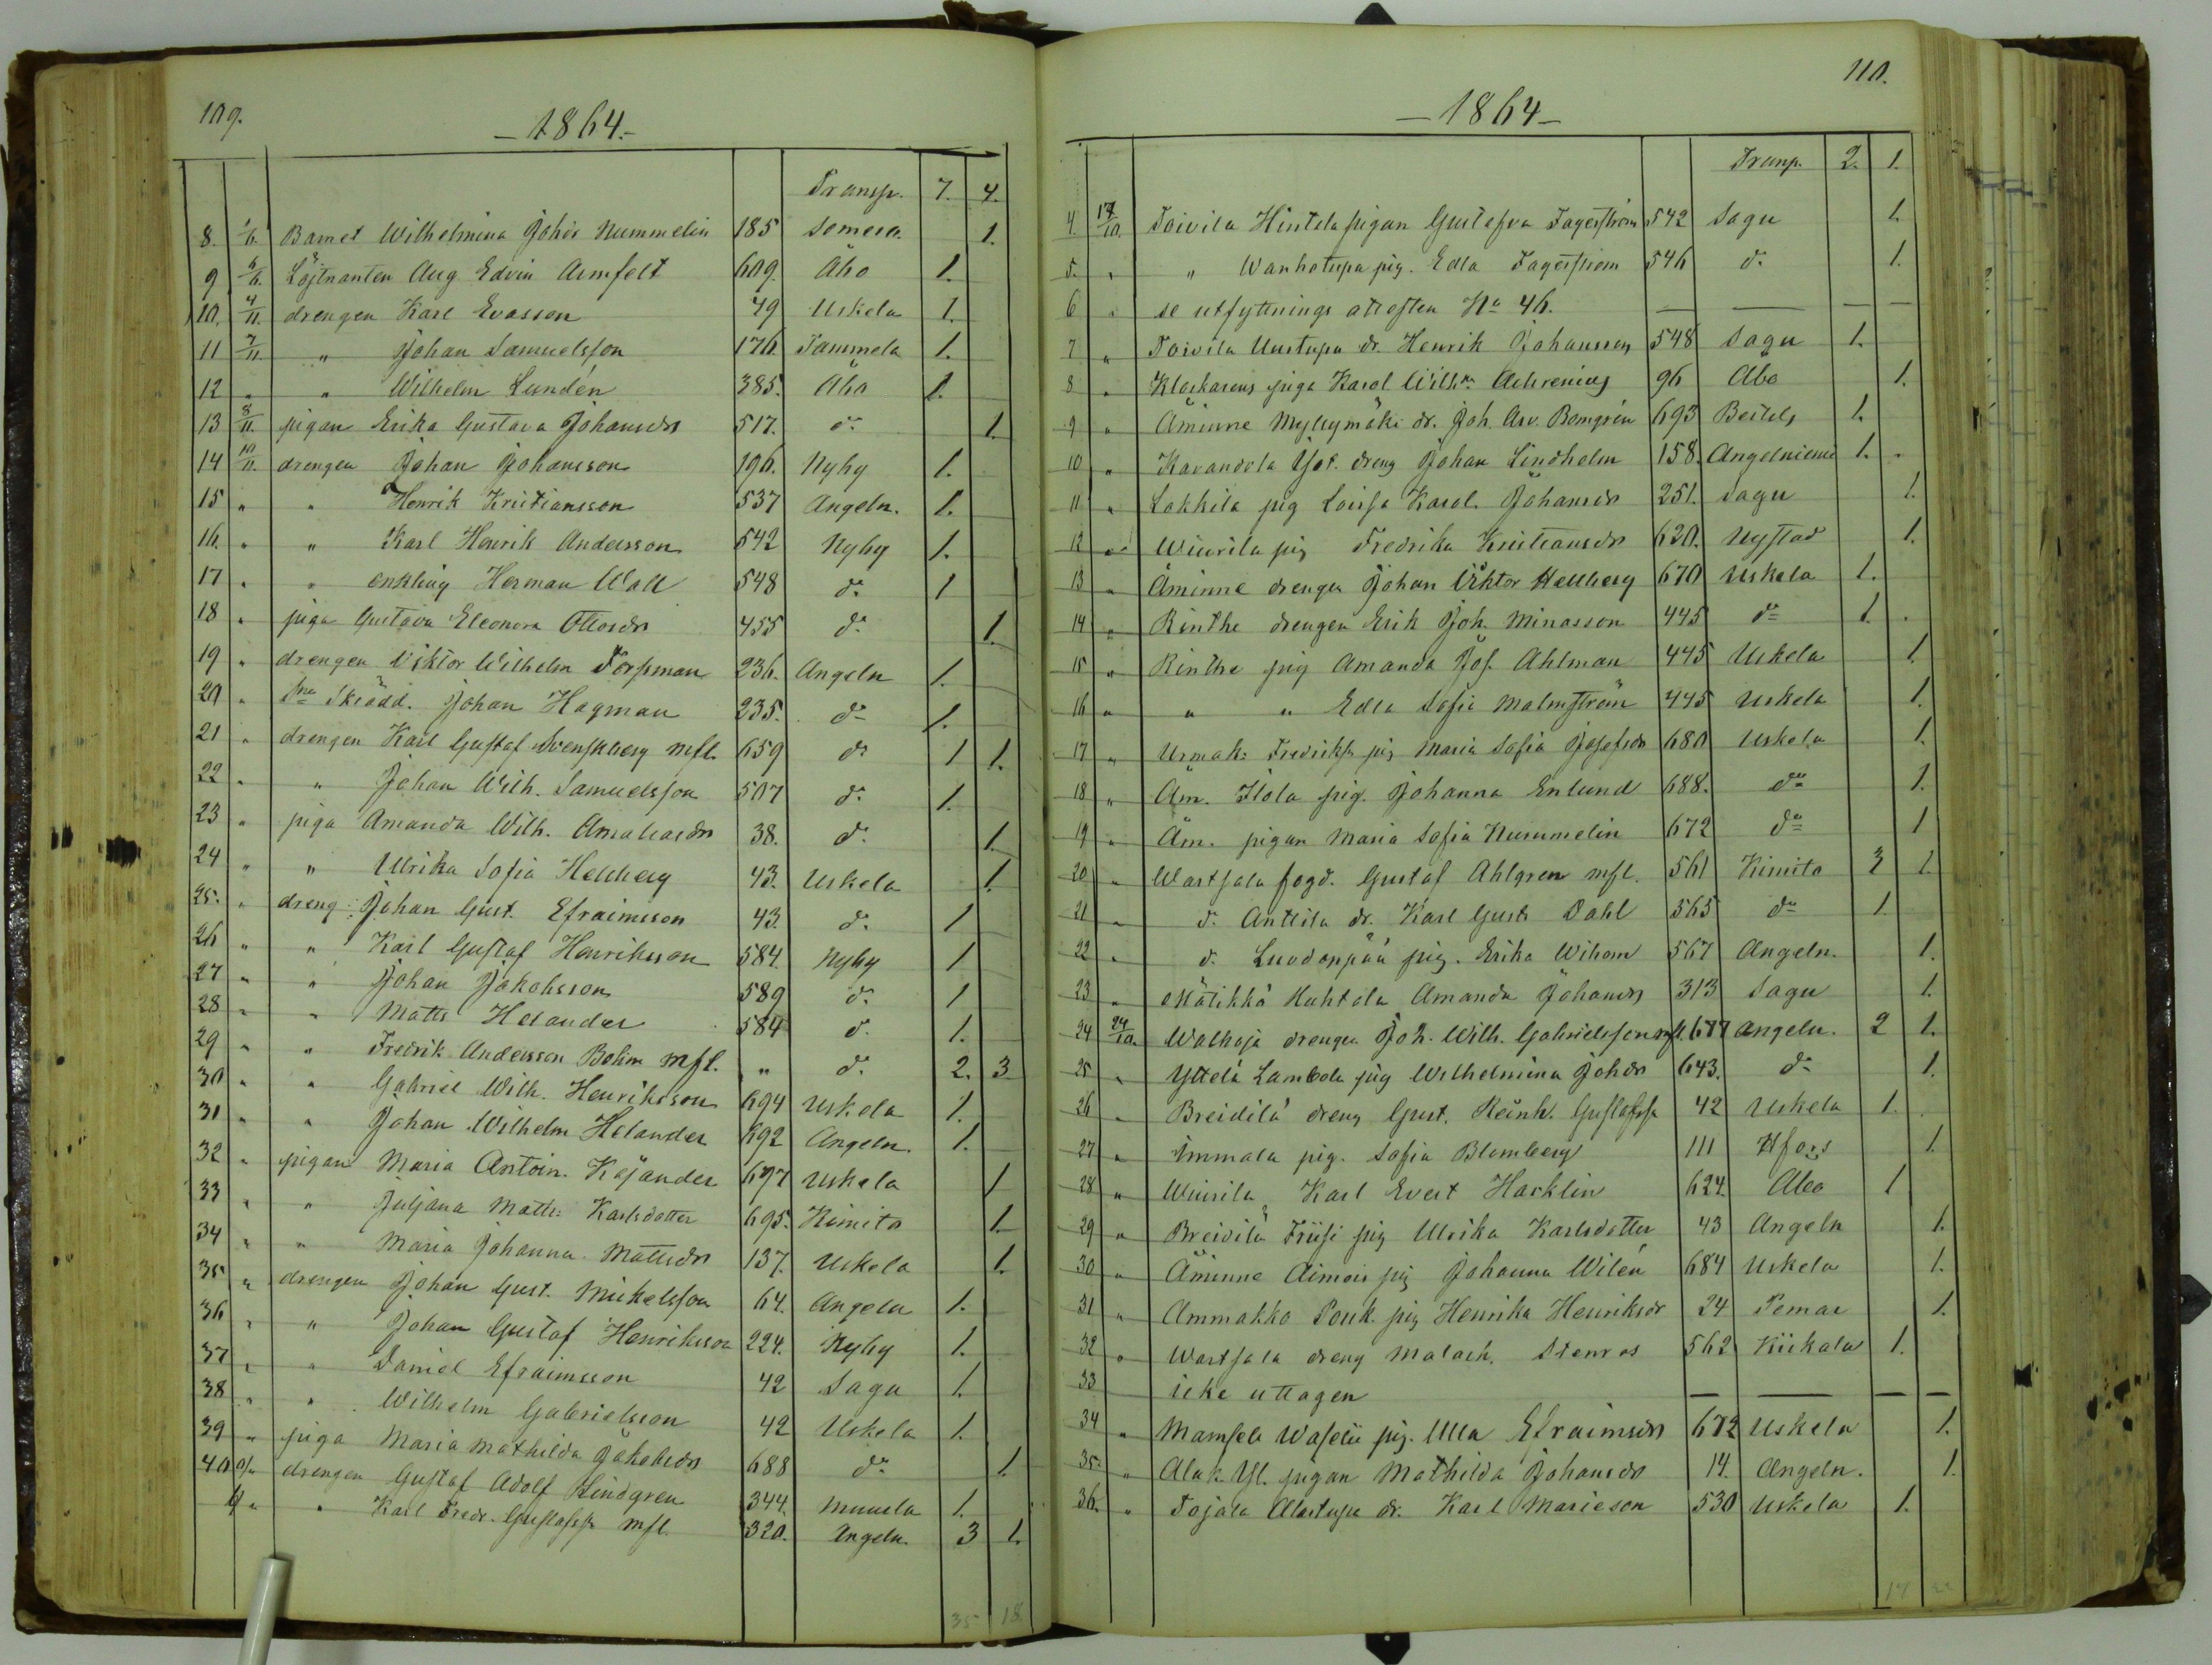 109.
1864.
Transp. 7. 4.
8. 1/6. Barnet Wilhelmina Johds Nummelin 185 Somero. 1.
9 6/6. Löjtnanten Aug Edvin Armfelt 609. Åbo 1.
10. 4/11. drengen Karl Evasson 49 Uskela 1.
11 7/11. " Johan Samuelsson 176. Tammela 1.
12 " " Wilhelm Lundén 385. Åbo 1.
13 8/11. pigan Erika Gustava Johansdr 517. do 1.
14 10/11. drengen Johan Johansson 196. Nyby 1.
15 " " Henrik Kristiansson 537 Angeln. 1.
16. " " Karl Henrik Andersson 542 Nyby 1.
17 " " enkling Herman Wall 548 do 1
18 " piga Gustava Eleonora Ottosdr 455 do 1.
19 " drengen Viktor Wilhelm Forsman 236. Angeln 1.
20 " Skrädd. Johan Hagman 235. do 1.
21 " drengen Karl Gustaf Svenskberg mfl. 659 do 1 1.
22 " " Johan Wilh. Samuelsson 507 do 1.
23 " piga Amanda Wilh. Amaliasdr 38. do 1.
24 " " Ulrika Sofia Hellberg 43. Uskela 1.
25. " dreng: Johan Gust. Efraimsson 43. do 1
26 " " Karl Gustaf Henriksson 584. Nyby 1
27 " " Johan Jakobsson 589 do 1
28 " " Matts Helander 584 do 1.
29 " " Fredrik Andersson Bohm mfl. " do 2. 3
30 " " Gabriel Wilh. Henriksson 694 Uskela 1.
31 " " Johan Wilhelm Helander 692 Angeln. 1.
32 " pigan Maria Antoin. Kajander 697 Uskela 1
33 " " Juljana Math: Karlsdotter 695. Kimito 1.
34 " " Maria Johanna Mattsdr 137. Uskela 1.
35 " drengen Johan Gust. Mickelsson 64. Angeln 1.
36 " " Johan Gustaf Henriksson 224. Nyby 1.
37 " " Daniel Efraimsson 42 Sagu 1.
38 " " Wilhelm Gabrielsson 42 Uskela 1.
39 " piga Maria Mathilda Jakobsdr 688 do 1
40 drengen Gustaf Adolf Lindgren 344. 1.
41 " " Karl Fredr. Gustafss mfl. 320. Angeln. 3 1.
35 18
110.
1864
Transp. 2. 1.
4. 17/10. Toivila Hintsla pigan Gustafva Fagerström 542 Sagu 1.
5. " " Wanhatupa pig. Edla Fagerström 546 do 1.
6 " se utflyttnings attesten No 46. — — — —
7 " Toivila Uustupa dr. Henrik Johansson 548 Sagu 1.
8 " Klockarens piga Karol. Wilh:a Achrenius 96 Åbo 1.
9 " Åminne Myllymäki dr. Joh. Arv. Bomgrén 693 1.
10 " Karandela Yst. dreng Johan Lindholm 158. Angelniemi 1.
11 " Lakkila pig Lovisa Karol. Johansdr 251. Sagu 1.
12 " Wiurila pig Fredrika Kristiansdr 620. Nystad 1.
13 " Åminne drengen Johan Viktor Hellberg 670 Uskela 1.
14 " Rinthe drengen Erik Joh. Minasson 445 do 1.
15 " Rinthe pig Amanda Jos. Ahlman 445 Uskela 1.
16 " " " Edla Sofia Malmström 445 Uskela 1.
17 " Urmak: Fredrikss pig Maria Sofia Josefsdr 680 Uskela 1.
18 " Åm. Ilola pig. Johanna Enlund 688. do 1.
19 " Åm. pigan Maria Sofia Nummelin 672 do 1
20 " Wartsala fogd. Gustaf Ahlgren mfl. 561 Kimito 3 1.
21 " do Anttila dr. Karl Gust. Dahl 565 do 1.
22 " do Luodonpää pig. Erika Wihom 567 Angeln. 1.
23 " Mälikkä Huhtala Amanda Johansdr 313 Sagu 1.
24 24/10. Walhoja drengen Joh. Wilh. Gabrielsson mfl. 677 Angeln. 2 1.
25 " Yttelä Lambola pig Wilhelmina Johdr 643. do 1.
26 " Breidilä dreng Gust. Reinh. Gustafss 42 Uskela 1.
27 " Immala pig. Sofia Blomberg 111 Hfors 1.
28 " Wiurila Karl Evert Hacklin 624. Åbo 1
29 " Breidilä Friisi pig Ulrika Karlsdotter 43 Angeln 1.
30 " Åminne Aimois pig Johanna Wilén 684 Uskela 1.
31 " Ammakko Pouk. pig Henrika Henriksdr 24 Pemar 1.
32 " Wartsala dreng Malach. Stenros 562 Kiikala 1.
33 icke uttagen — — — —
34 " Mamsell Waselii pig. Ulla Efraimsdr 672 Uskela 1.
35 " Alak. Yl. pigan Mathilda Johansdr 14. Angeln. 1.
36. " Tojala Alastupa dr. Karl Marieson 530 Uskela 1.
17 22